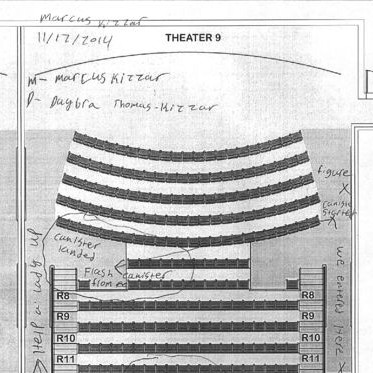 Marcus Kizzar
11/12/2014
THEATER 9
M- Marcus Kizzar
D- Daybra Thomas-Kizzar
figure
X
canister
X
canister
landed
Flash canister
Help a lady up
we entered Here X
R8
R8
R9
R9
R10
R10
R11
R11